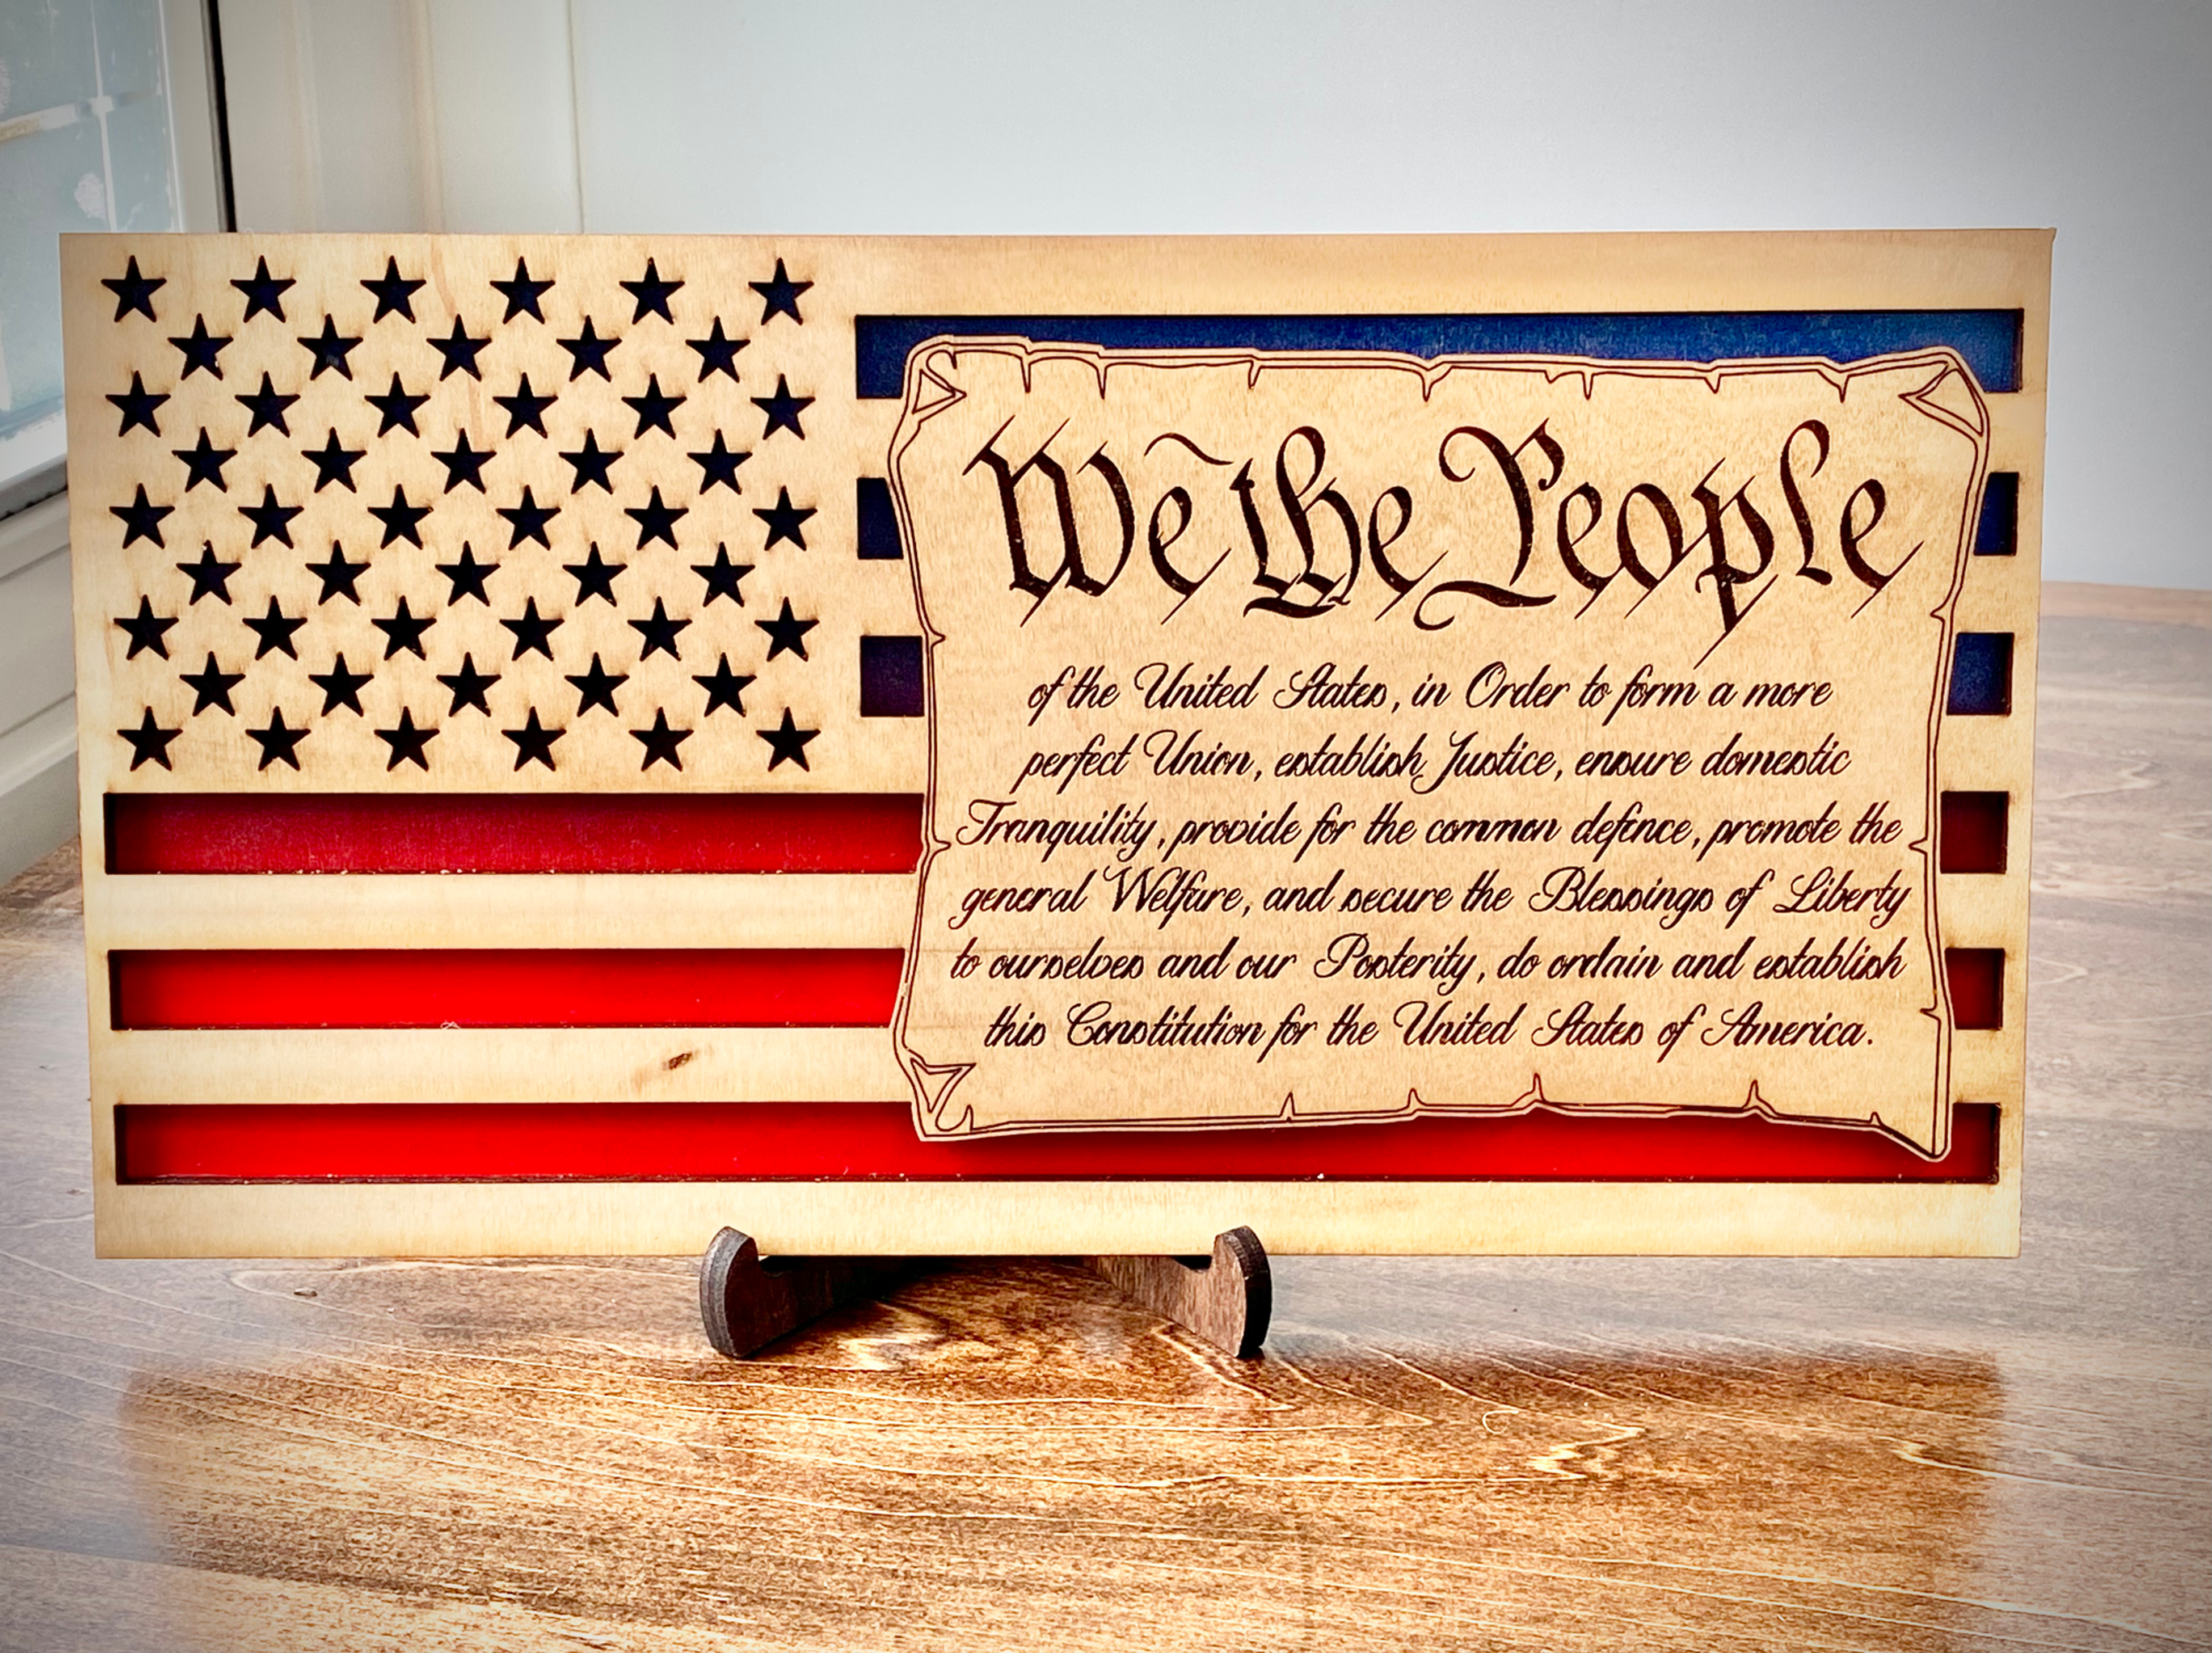 We the People
of the United States, in Order to form a more
perfect Union, establish Justice, ensure domestic
Tranquility, provide for the common defence, promote the
general Welfare, and secure the Blessings of Liberty
to ourselves and our Posterity, do ordain and establish
this Constitution for the United States of America.